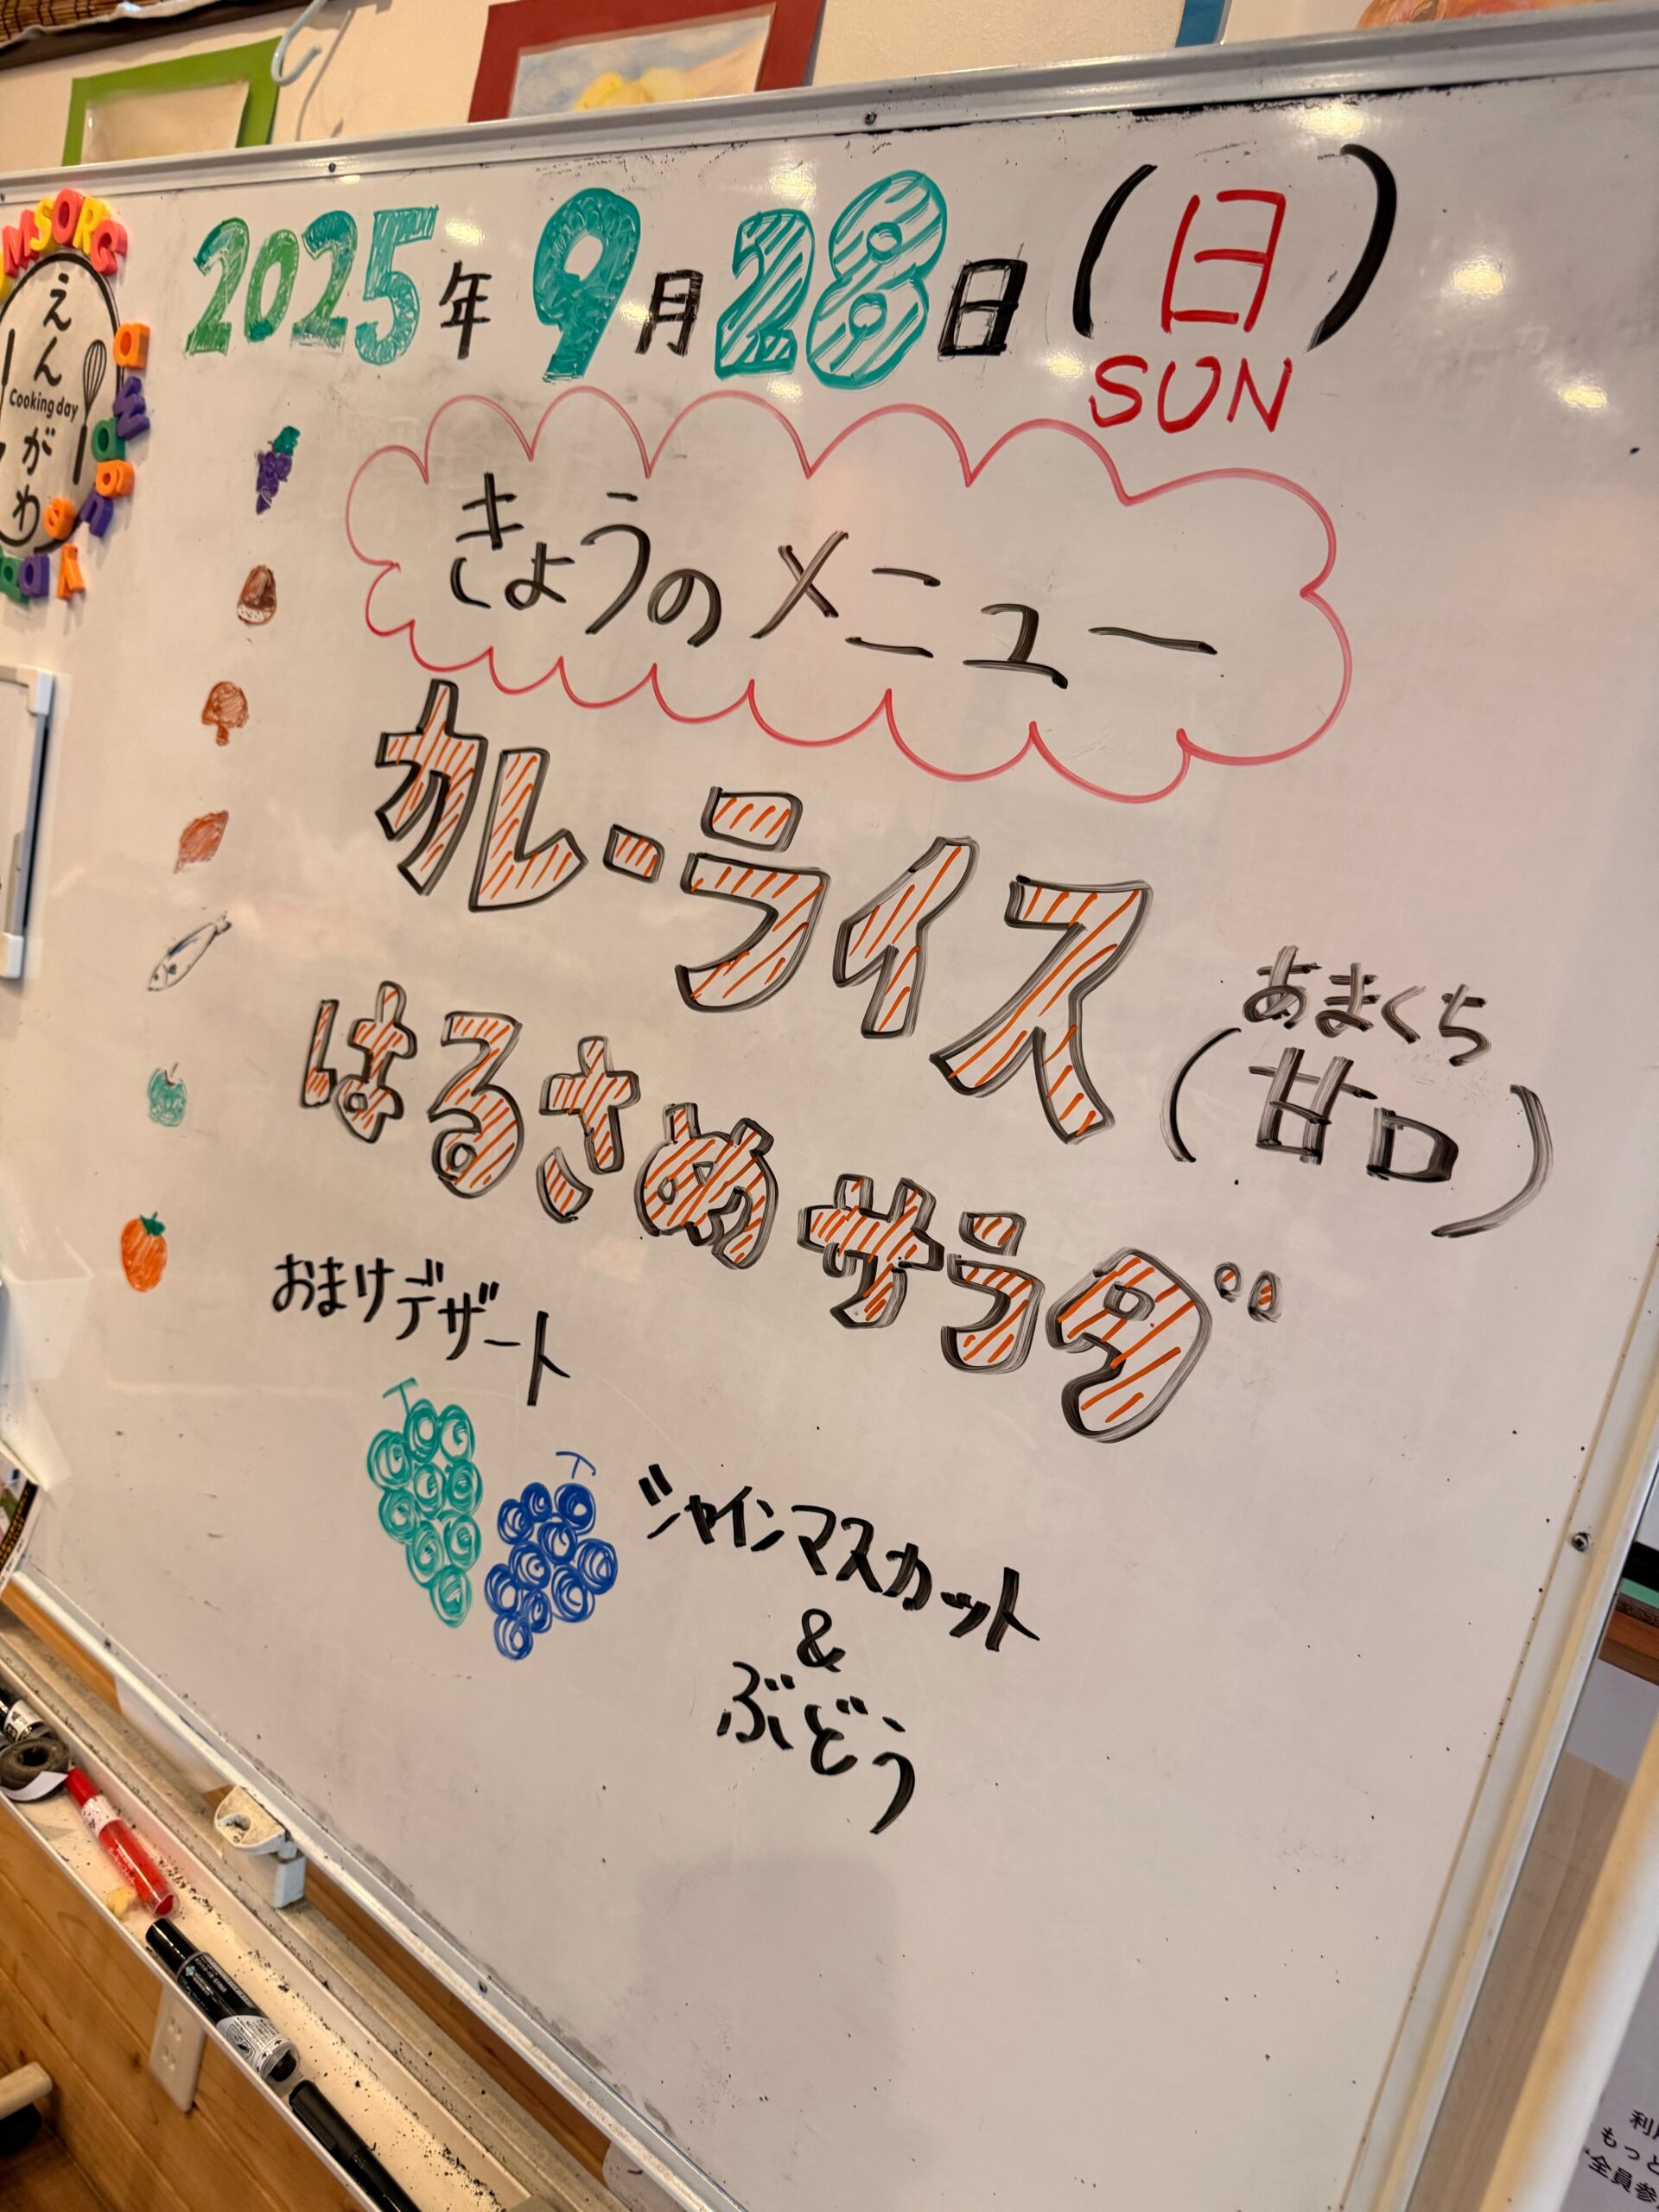 2025年 9月28日(日)
SUN
えんがわ
Cooking day
きょうのメニュー
カレーライス
あまくち
(甘口)
はるさめサラダ
おまけデザート
シャインマスカット
&
ぶどう
もっと
全員参